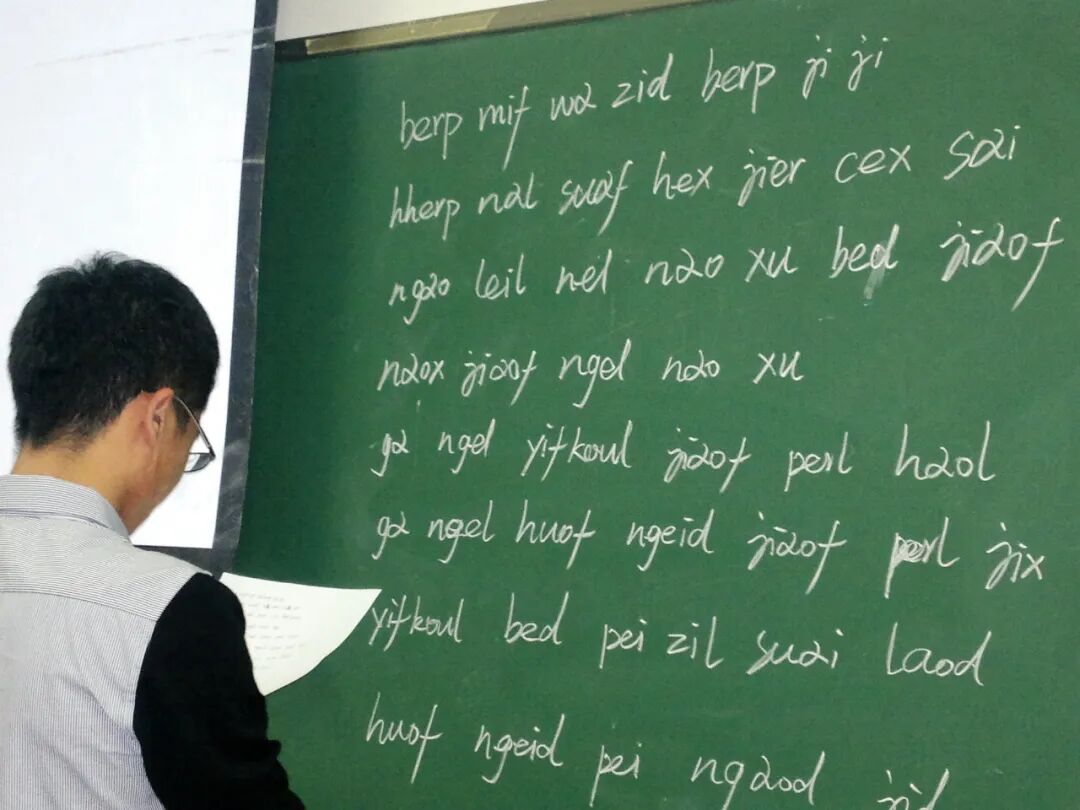 berp mif wa zid berp ji ji
hherp nal suaf hex jier cex sai
ngao leil nel nao xu bed jiaof
naox jiaof ngel nao xu
ga ngel yifkoul jiaof perl haol
ga ngel huof ngeid jiaof perl jix
yifkoul bed pei zil suai laod
huof ngeid pei ngaod